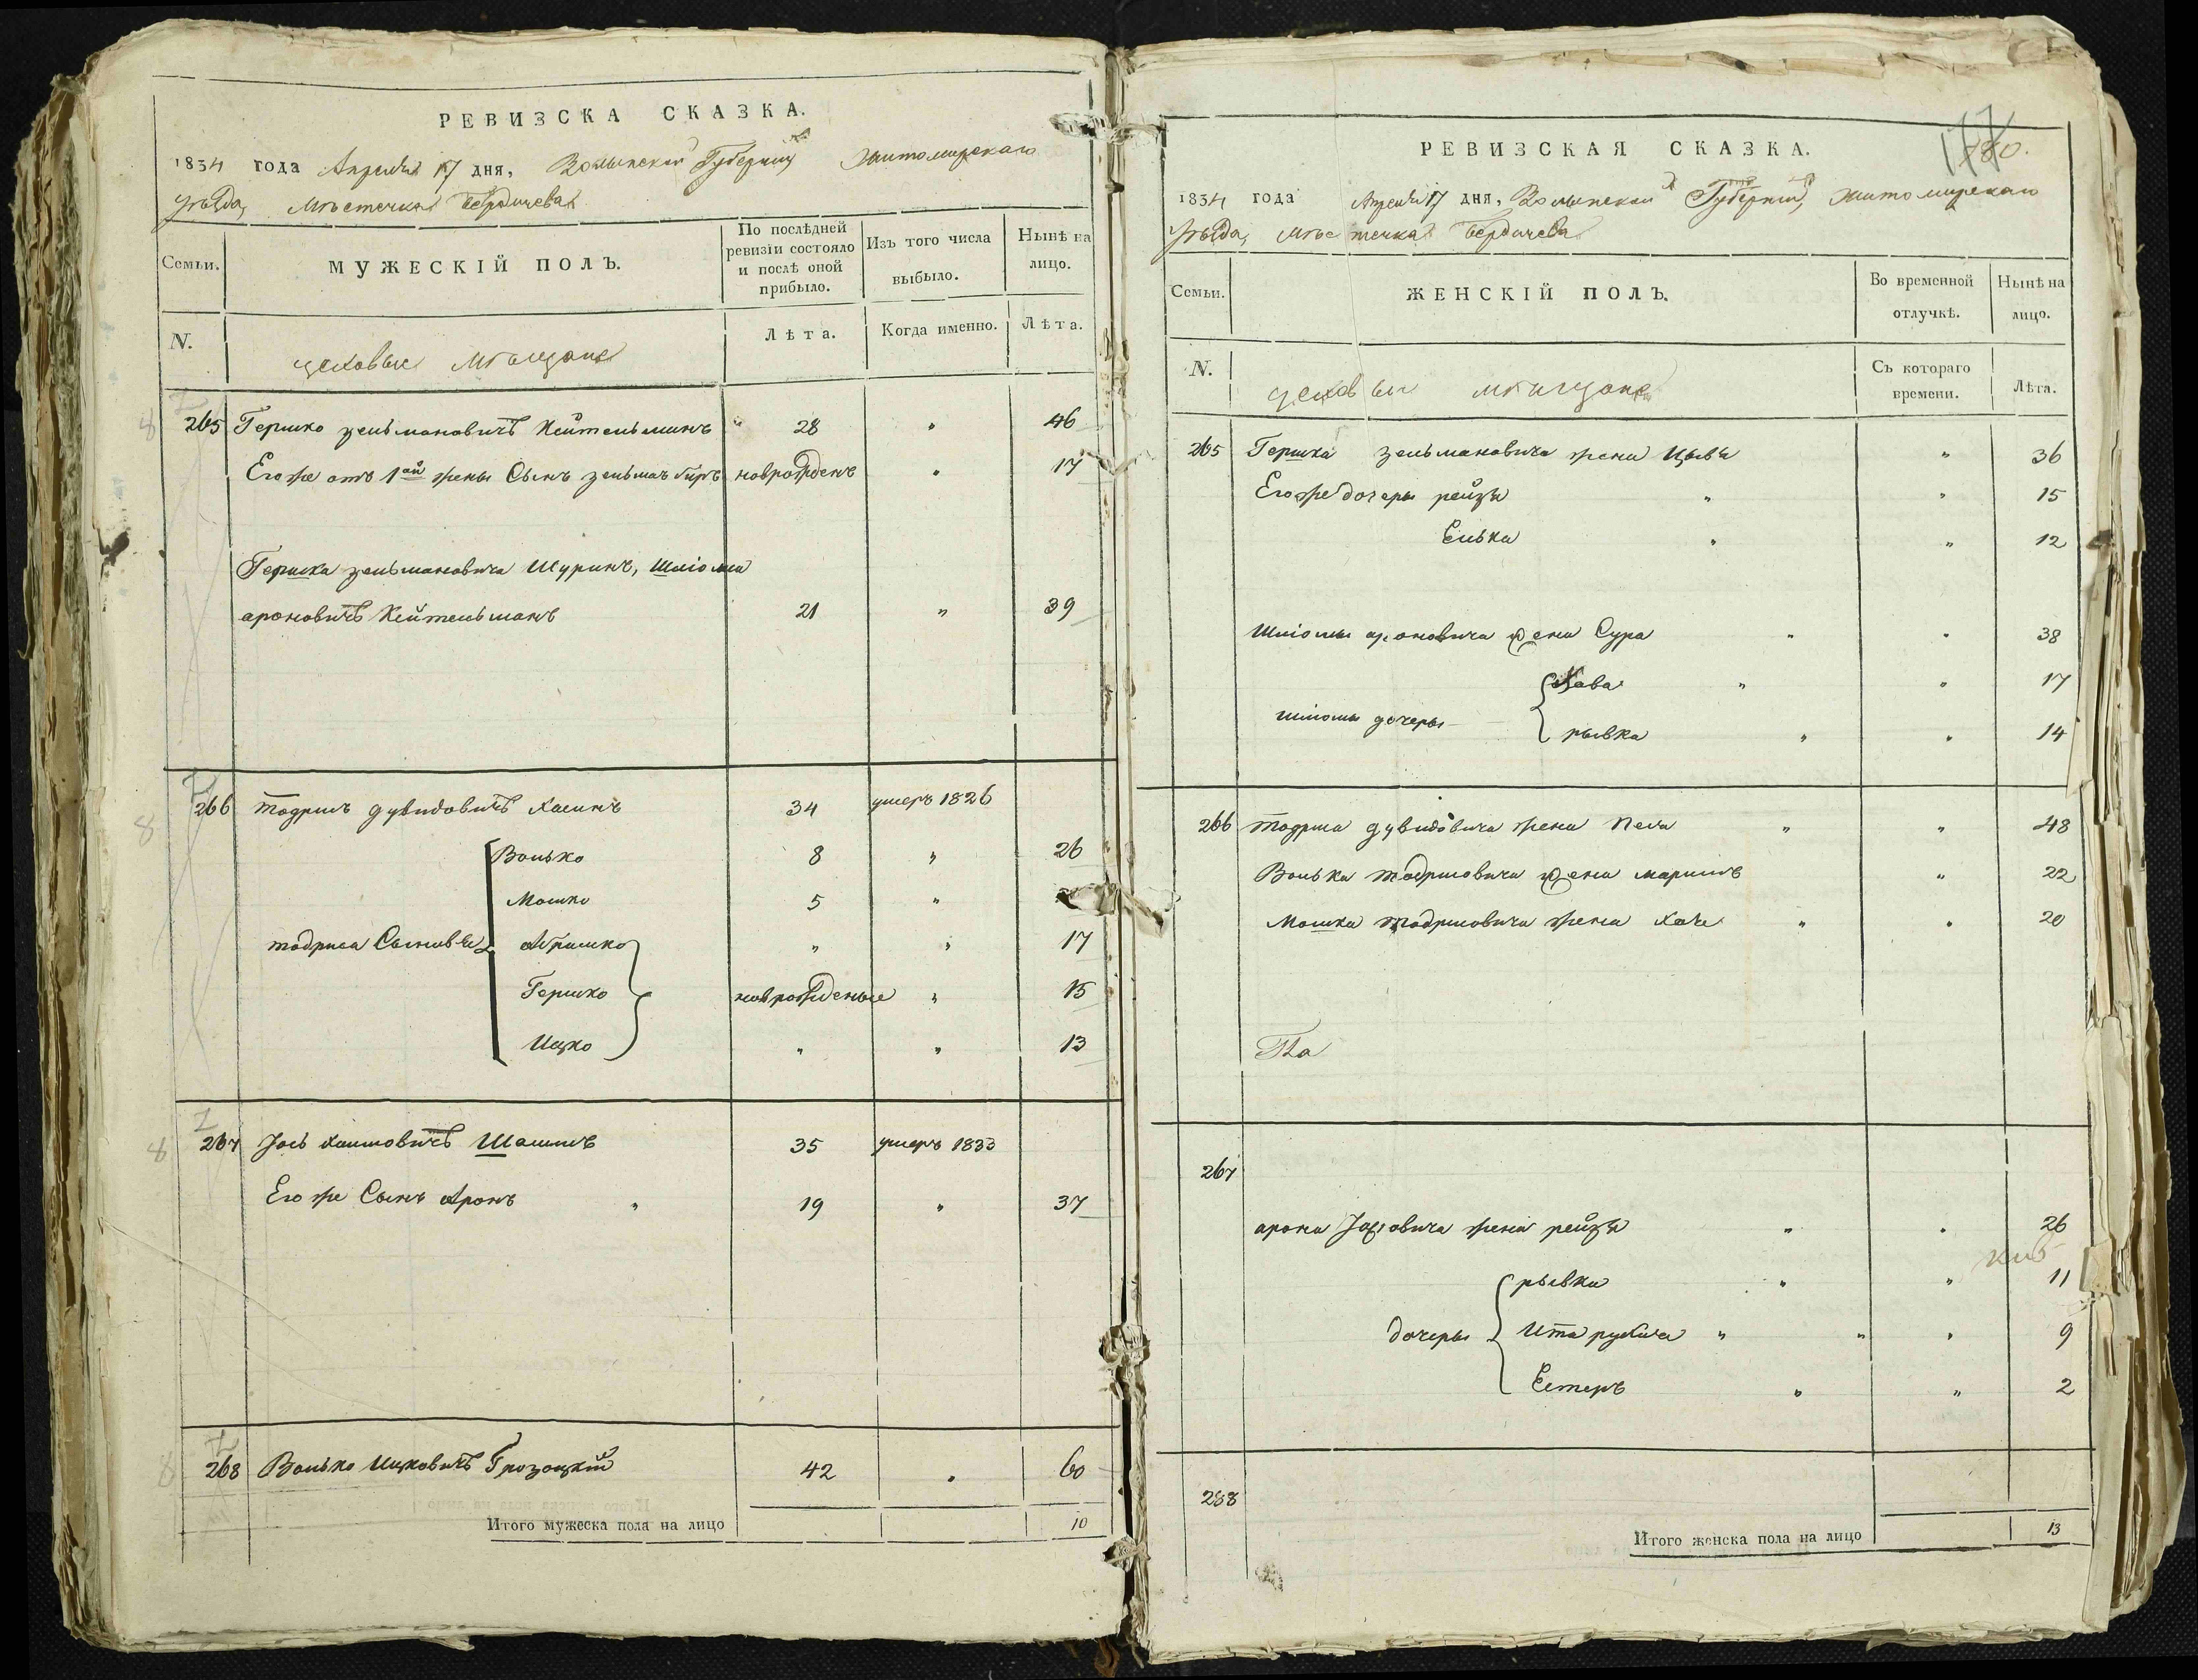 РЕВИЗСКА СКАЗКА.
1834 года Апреля 17 дня, Волынской Губернии Житомирскаго
уѣзда, Мѣстечка Бердичева
Семьи. МУЖЕСКІЙ ПОЛЪ. По послѣдней ревизіи состояло и послѣ оной прибыло. Изъ того числа выбыло. Нынѣ на лицо.
N. цеховые мѣщане Лѣта. Когда именно. Лѣта.
265 Гершко зельмановичъ Кейтельманъ " 28 " 46
Его же отъ 1ой жены Сынъ зельман новрожденъ " 17
Гершка зельмановича Шуринъ, Шліома
ароновичъ Кейтельманъ 21 " 39
266 тодрис дувидовичъ Хасинъ 34 умеръ 1826
Волько 8 " 26
Мошко 5 "
тодриса Сыновья Абрамко " " 17
Гершко новрожденые " 15
Ицко " " 13
267 Іось Хаимовичъ 35 умеръ 1833
Его же Сынъ Аронъ " 19 " 37
268 Волько Ицковичъ Грозоцкій 42 " 60
Итого мужеска пола на лицо 10
РЕВИЗСКАЯ СКАЗКА.
177
180.
1834 года Апреля 17 дня, Волынской Губернии, Житомирскаго
уѣзда, мѣстечка Бердичева
Семьи. ЖЕНСКІЙ ПОЛЪ. Во временной отлучкѣ. Нынѣ на лицо.
N. цеховые мѣщане Съ котораго времени. Лѣта.
265 Гершка зельмановича жена Цывя " 36
Его же дочеры рейзя " " 15
Елька " " 12
Шліомы ароновича жена Сура " " 38
Хава " " 17
шліомы дочеры
рывка " " 14
266 тодриса дувидовича жена Песя " " 48
Волька тодрисовича жена " 22
Мошка тодрисовича жена Хае " " 20
267
арона Іосовича жена рейзя " " 26
рывка " " 11
дочеры Ита рухля " " " 9
Естеръ " " 2
288
Итого женска пола на лицо 13